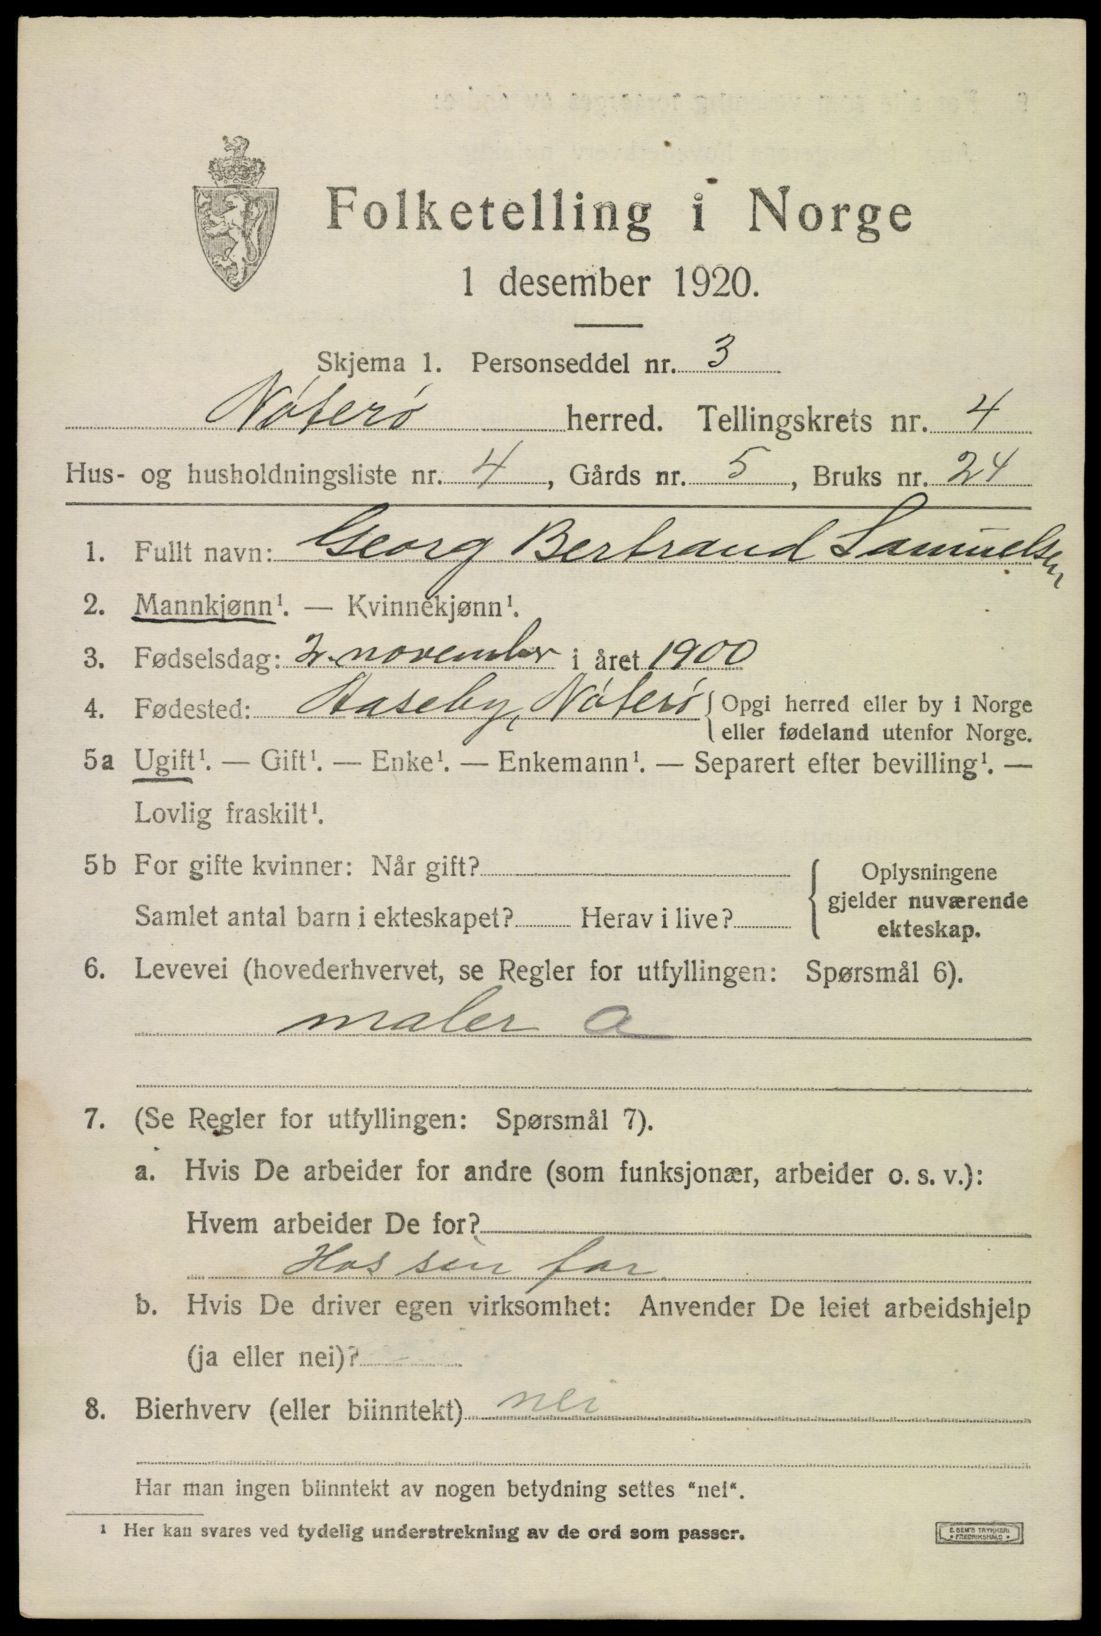 Folketelling i Norge
1 desember 1920.
Skjema 1. Personseddel nr. 3
Nøterø herred. Tellingskrets nr. 4
Hus- og husholdningsliste nr. 4, Gårds nr. 5, Bruks nr. 24
1. Fullt navn: Georg Bertrand Samuelsen
2. Mannkjønn¹. — Kvinnekjønn¹.
3. Fødselsdag: 2. november i året 1900
4. Fødested: Aaseby, Nøterø { Opgi herred eller by i Norge
eller fødeland utenfor Norge.
5a Ugift¹. — Gift¹. — Enke¹. — Enkemann¹. — Separert efter bevilling¹. —
Lovlig fraskilt¹.
5b For gifte kvinner: Når gift?
Samlet antal barn i ekteskapet? Herav i live?
Oplysningene
gjelder nuværende
ekteskap.
6. Levevei (hovederhvervet, se Regler for utfyllingen: Spørsmål 6).
maler a
7. (Se Regler for utfyllingen: Spørsmål 7).
a. Hvis De arbeider for andre (som funksjonær, arbeider o. s. v.):
Hvem arbeider De for?
Hos sin far
b. Hvis De driver egen virksomhet: Anvender De leiet arbeidshjelp
(ja eller nei)?
8. Bierhverv (eller biinntekt) nei
Har man ingen biinntekt av nogen betydning settes "nei".
¹ Her kan svares ved tydelig understrekning av de ord som passer.
E. SEM'S TRYKKERI
FREDRIKSHALD